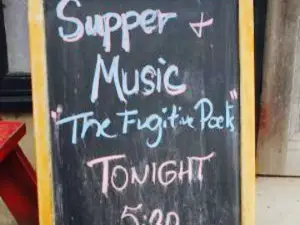 Supper +
Music
"The Fugitive Poets"
TONIGHT
5:30